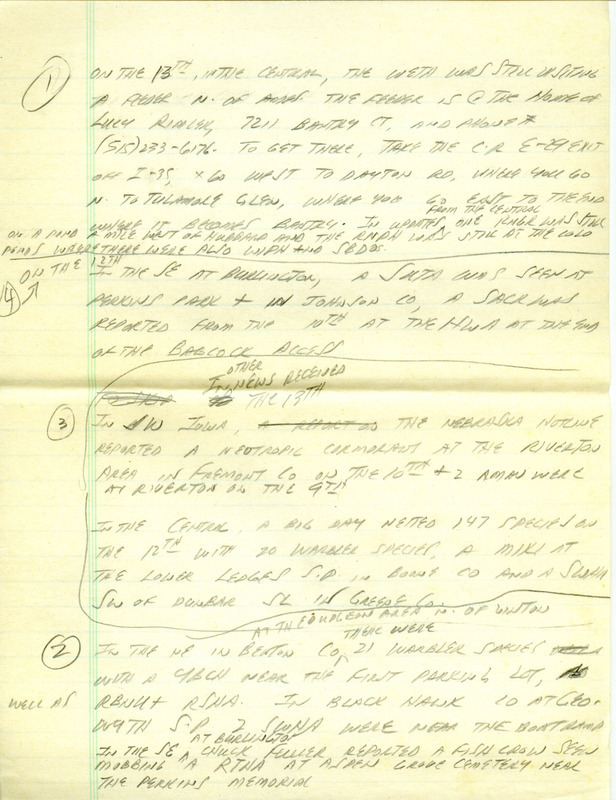 1
ON THE 13TH, IN THE CENTRAL, THE WETA WAS STILL VISITING
A FEEDER N. OF AMES. THE FEEDER IS @ THE HOME OF
LUCY 7211 BANTRY CT, AND PHONE #
(515) 233-6176. TO GET THERE, TAKE THE C.R E-29 EXIT
OFF I-35, & GO WEST TO DAYTON RD, WHERE YOU GO
N. TO TULAMORE GLEN, WHERE YOU GO EAST TO THE END
WHERE IT BECOMES BANTRY. IN UPDATES FROM THE CENTRAL, ONE WAS STILL
ON A POND 2 MILE OF AND THE WAS STILL AT THE COLO
PONDS WHERE THERE WERE ALSO WNPH AND SBDOS.
4 ON THE 12TH
IN THE SE AT BURLINGTON, A SUTA WAS SEEN AT
PERKINS PARK + IN JOHNSON CO, A WAS
REPORTED FROM THE 10TH AT THE HWA AT THE END
OF THE BABCOCK ACCESS
IN OTHER NEWS RECEIVED
THE 13TH
3
IN SW IOWA, THE NEBRASKA HOTLINE
REPORTED A NEOTROPIC CORMORANT AT THE RIVERTON
AREA IN FREMONT CO ON THE 10TH + 2 AMAV WERE
AT RIVERTON ON THE 9TH
IN THE CENTRAL, A BIG DAY NETTED 147 SPECIES ON
THE 12TH WITH 20 WARBLER SPECIES, A MIKI AT
THE LOWER LEDGES S.P. IN BOONE CO AND A SWHA
SW OF DUNBAR SL IN GREENE CO.
2
AT THE DUDGEON AREA N. OF VINTON
IN THE NE IN BENTON CO, THERE WERE 21 WARBLER SPECIES
WITH A YBCH NEAR THE FIRST PARKING LOT,
WELL AS RBNU + RSHA. IN BLACK HAWK CO AT GEO.
WYTH S.P. 2 SWWA WERE NEAR THE BOAT RAMP
IN THE SE AT BURLINGTON, CHUCK FULLER REPORTED A FISH CROW SEEN
MOBBING A RTHA AT ASPEN GROVE CEMETERY NEAR
THE PERKINS MEMORIAL